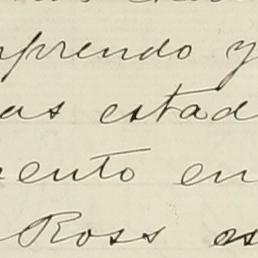 mprendo y
as estad
ento en
Ross es